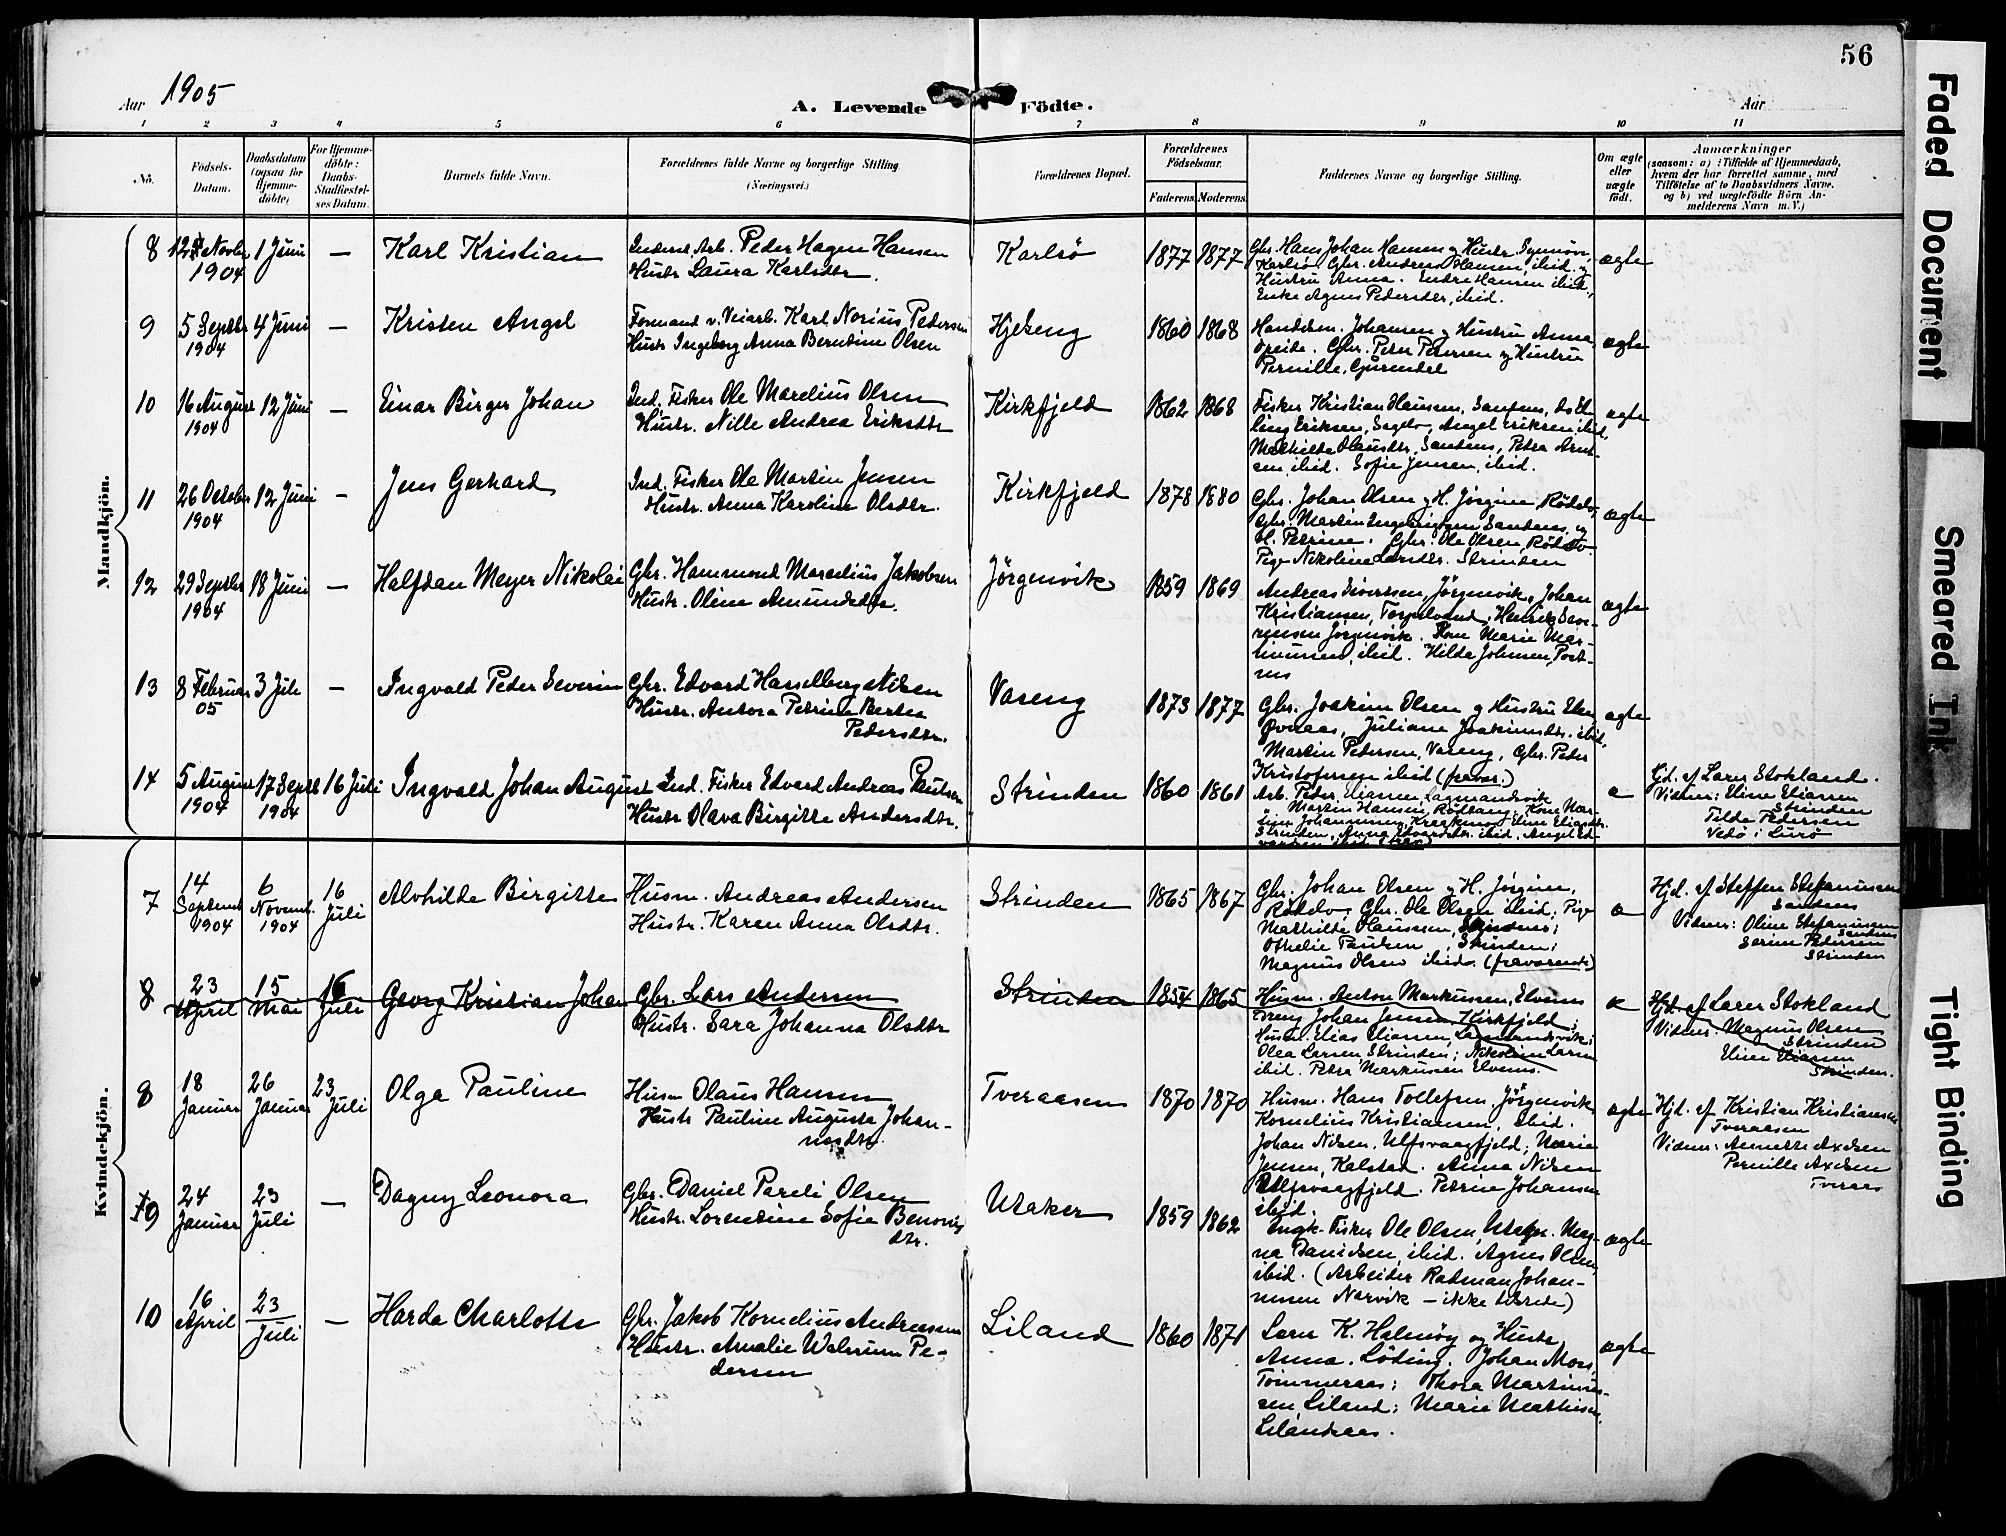 56
Aar 1905
A. Levende Födte.
Aar
1 2 3 4 5 6 7 8 9 10 11
No.
Födsels-
Datum.
Daabsdatum
(ogsaa for
Hjemme-
döbte)
For Hjemme-
döbte:
Daabs-
Stadfæstel-
ses Datum.
Barnets fulde Navn.
Forældrenes fulde Navne og borgerlige Stilling
(Næringsvei.)
Forældrenes Bopæl.
Forældrenes
Födselsaar.
Faderens Moderens
Faddernes Navne og borgerlige Stilling.
Om ægte
eller
uægte
födt.
Anmærkninger
(saasom: a) i Tilfælde af Hjemmedaab,
hvem der har forrettet samme, med
Tilföielse af to Daabsvidners Navne,
og b) ved uægtefödte Börn An-
melderens Navn m. V.)
Mandkjön.
8 12 Novbr 1904 1 Juni — Karl Kristian
Inderst, Arb. Peder Hagen Hansen
Hustr. Laura Karlsdtr.
Karlsö 1877 1877
Gbr. Hans Johan Hansen og Hustr.
Karlsö. Gbr. Andreas Hansen, ibid. og
Hustru Anna. Endre Hansen ibid.,
Enke Agnes Pedersdtr, ibid.
ægte
9 5 Septbr 1904 4 Juni — Kristen Angel
Formand v. Veiarb. Karl Norius Pedersen
Hustr Ingeborg Anna Berntine Olsen
Hjeseng 1860 1868
Handelsm. Johansen og Hustru Anna
Gbr. Peter Petersen og Hustru
Pernille,
ægte
10 16 August 1904 12 Juni — Einar Birger Johan
Ind. Fisker Ole Marelius Olsen
Hustr. Nille Andrea Eriksdtr
Kirkfjeld 1862 1868
Fisker Kristian Hansen, Sandnes,
Eriksen, Angel Eriksen ibid,
Mathilde Olausdtr, Sandnes, Petra Arnt-
sen, ibid. Sofie Jensen, ibid.
ægte
11 26 October 1904 12 Juni — Jens Gerhard
Ind. Fisker Ole Martin Jensen
Hustr. Anna Karoline Olsdtr.
Kirkfjeld 1878 1880
Gbr. Johan Olsen og H. Jørgine, Rødelv,
Gbr. Martin Ingebrigtsen Sandnes, og
H. Petrine. Gbr. Ole Olsen, Rødelv
Pige Nikoline Larsdtr. Strinden
ægte
12 29 Septbr 1904 18 Juni — Halfdan Meyer Nikolai
Gbr. Hammond Marselius Jakobsen
Hustr. Oline Amundsdtr.
Jörgenvik 1859 1869
Andreas Sivertsen, Jörgenvik, Johan
Kristiansen, Henrik Seve-
rinsen Jörgenvik. Kone Marie Mar-
ibid. Hilda Johnsen, Post-
ægte
13 8 Februar 05 3 Juli — Ingvald Peder Severin
Gbr. Edvard Hasselberg Nilsen
Hustr. Antora Petrine Bertea
Pedersdtr.
Vaseng 1873 1877
Gbr. Joakim Olsen og Hustru
Juliane Joakimsdtr. ibid,
Martin Pedersen, Vaseng, Gbr. Peder
Kristofersen ibid (fravær.)
ægte
14 5 August 1904 17 Septb 1904 16 Juli Ingvald Johan August
Ind. Fisker Edvard Andreas Paulsen
Hustr Olava Birgitte Andersdtr.
Strinden 1860 1861
Arb. Peder Eliassen, Lagmandsvik
Martin Hansen, Kone Mar-
Johannesen, Kraakmo, Eline Eliasdtr.
Strinden, Anna Edvardsdtr. ibid, Angel Ed-
vardsen ibid
e
Hjd. af Larer Stokland.
Vidner: Eline Eliassen
Strinden
Tilde Pedersen
i Lurö
Kvindekjön.
7 14 Septemb 1904 6 Novemb. 1904 16 Juli Alvhilde Birgitte
Husm. Andreas Andersen
Hustr. Karen Anna Olsdtr.
Strinden 1865 1867
Gbr. Johan Olsen og H. Jørgine,
Rødelv; Gbr. Ole Olsen ibid; Pige
Mathilde Olaussen,
Othelie Paulsen, Strinden;
Magnus Olsen ibid. (fraværende)
e
Hjd. af Steffen Stefaninsen
Sandnes
Vidner: Oline Stefaninsen
Sandnes
Serine Pedersen
Strinden
8 23 April 15 Mai 16 Juli Georg Kristian Johan
Gbr. Lars Andersen
Hustr. Sara Johanna Olsdtr
Strinden 1854 1865
Husm. Anton Markussen, Elvenes
Dreng Johan Jensen, Kirkfjeld;
Husm. Elias Eliassen, Lagmandsvik;
Olea Larsen, Strinden; Nikoline Larsen
ibid. Petra Markussen Elvenes.
e
Hjd. af Larer Stokland
Vidner: Magnus Olsen
Strinden
Eline Eliassen
Strinden.
8 18 Januar 26 Januar 23 Juli Olga Pauline
Husm Olaus Hansen
Hustr Pauline Augusta Johan-
nesdtr.
Tveraasen 1870 1870
Husm. Hans Tollefsen, Jörgenvik
Kornelius Kristiansen, ibid.
Johan Nilsen, Ulfsvaagfjeld; Marie
Jensen, Kalstad. Anna Nilsen
Ulfsvaagfjeld. Petrine Johansen
ibid.
ægte
Hjd. af Kristian Kristiansen
Tveraasen
Vidner: Annette Axelsen
Pernille Axelsen
Tveraas
9 24 Januar 23 Juli — Dagny Leonora
Gbr. Daniel Pareli Olsen
Hustr. Lorentine Sofie Benonis
dtr.
Utaker 1859 1862
Ungk. Fisker Ole Olsen, Utaker. Mag-
na Danielsen, ibid. Agnes Olsen
ibid. (Arbeider Radman Johan-
nesen Narvik — ikke tilstede)
ægte
10 16 April 23 Juli — Harda Charlotte
Gbr. Jakob Kornelius Andreassen
Hustr. Amalie Walrum Pe-
dersen
Liland 1860 1871
Larer K. Halmöy og Hustr
Anna, Löding. Johan Moe,
Tömmeraas; Thora Martinus-
sen Liland; Marie Mathisen,
Lilandsaas.
ægte
Faded Document
Smeared Ink
Tight Binding